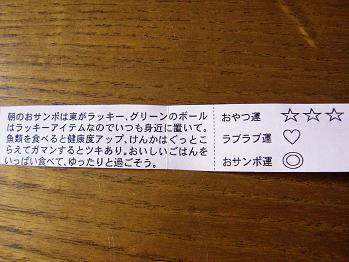 朝のおサンポは東がラッキー、グリーンのボール
はラッキーアイテムなのでいつも身近に置いて。
魚類を食べると健康度アップ、けんかはぐっとこ
らえてガマンするとツキあり。おいしいごはんを
いっぱい食べて、ゆったりと過ごそう。
おやつ運 ☆☆☆
ラブラブ運 ♡
おサンポ運 ◎